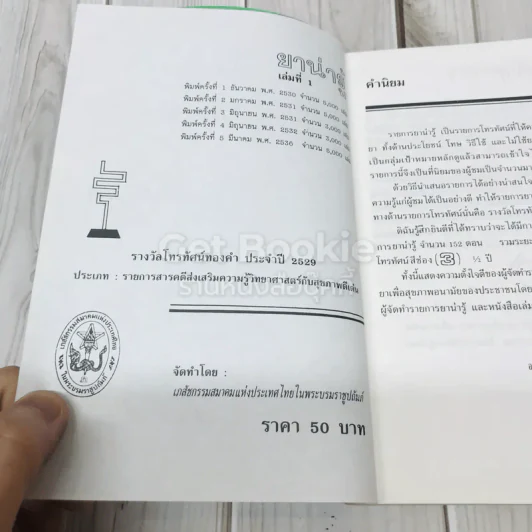 ยาน่ารู้
เล่มที่ 1
พิมพ์ครั้งที่ 1 ธันวาคม พ.ศ. 2530 จำนวน 5,000
พิมพ์ครั้งที่ 2 มกราคม พ.ศ. 2531 จำนวน 5,000
พิมพ์ครั้งที่ 3 มิถุนายน พ.ศ. 2531 จำนวน 5,000
พิมพ์ครั้งที่ 4 มิถุนายน พ.ศ. 2532 จำนวน 3,000
พิมพ์ครั้งที่ 5 มีนาคม พ.ศ. 2536 จำนวน 5,000
รางวัลโทรทัศน์ทองคำ ประจำปี 2529
ประเภท : รายการสารคดีส่งเสริมความรู้วิทยาศาสตร์กับสุขภาพดีเด่น
เภสัชกรรมสมาคมแห่งประเทศไทย
ในพระบรมราชูปถัมภ์
จัดทำโดย :
เภสัชกรรมสมาคมแห่งประเทศไทยในพระบรมราชูปถัมภ์
ราคา 50 บาท
คำนิยม
รายการยาน่ารู้ เป็นรายการโทรทัศน์ที่ให้
ยา ทั้งด้านประโยชน์ โทษ วิธีใช้ และไม่ใช้
เป็นกลุ่มเป้าหมายหลักดูแล้วสามารถเข้าใจ
รายการนี้จึงเป็นที่นิยมของผู้ชมเป็นจำนวน
ด้วยวิธีนำเสนอรายการได้อย่างน่าสนใจ
ความรู้แก่ผู้ชมได้เป็นอย่างดี ทำให้รายการ
ทางด้านรายการโทรทัศน์นั่นคือ รางวัลโทรทัศน์
ดิฉันรู้สึกยินดีที่ได้ทราบว่าจะได้มี
การยาน่ารู้ จำนวน 152 ตอน รวมระยะ
โทรทัศน์สีช่อง 3 ½ ปี
ทั้งนี้แสดงความตั้งใจดีของผู้จัดทำ
ยาเพื่อสุขภาพอนามัยของประชาชนโดย
ผู้จัดทำรายการยาน่ารู้ และหนังสือเล่ม
Get Bookie
ร้านหนังสือตุ๊กกี้